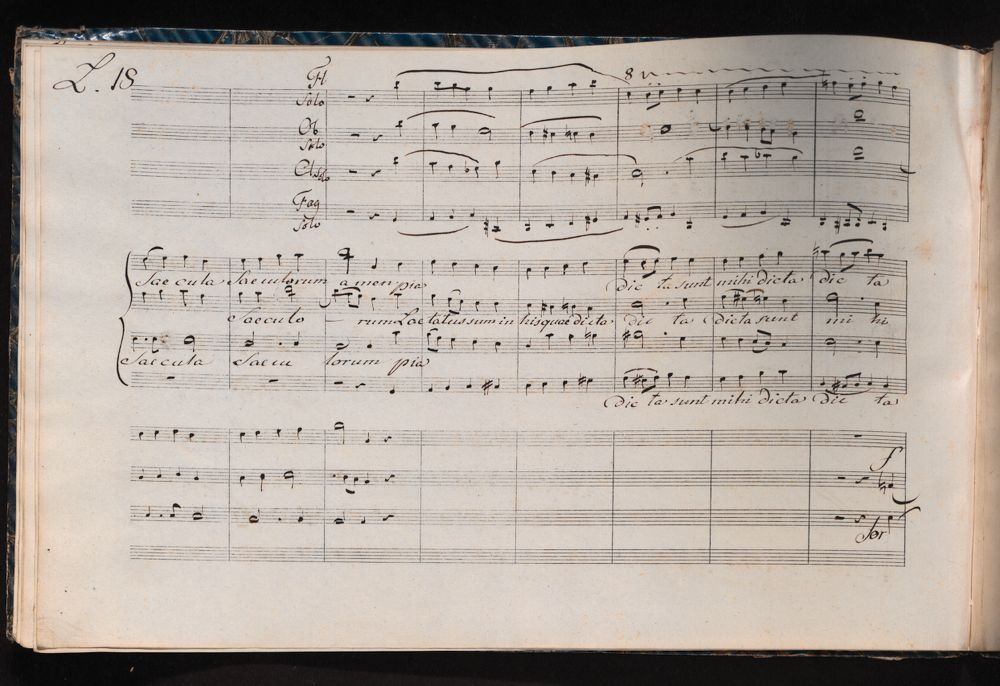 L. 18
Fl
Solo
8
Ob
Solo
Cl Solo
Fag
Solo
Saecula Saeculorum amen pia Dic ta sunt mihi dicta dic ta
Saeculo - rum Laetatus sum in his quae dicta dic ta dicta sunt mi hi
Saecula Saecu lorum pia
Dic ta sunt mihi dicta dic ta
f
for